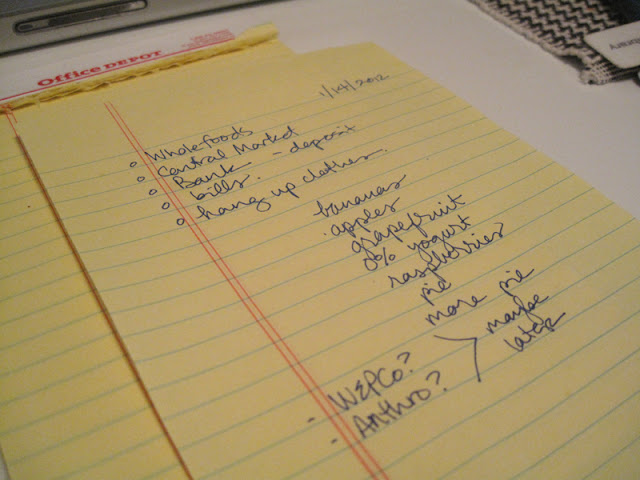 Office DEPOT
1/14/2012
• Whole foods
• Central Market
• Bank - deposit
• bills.
• hang up clothes.
bananas
apples
grapefruit
0% yogurt
raspberries
pie
more pie
- WEPCo?
- Anthro?
maybe
later